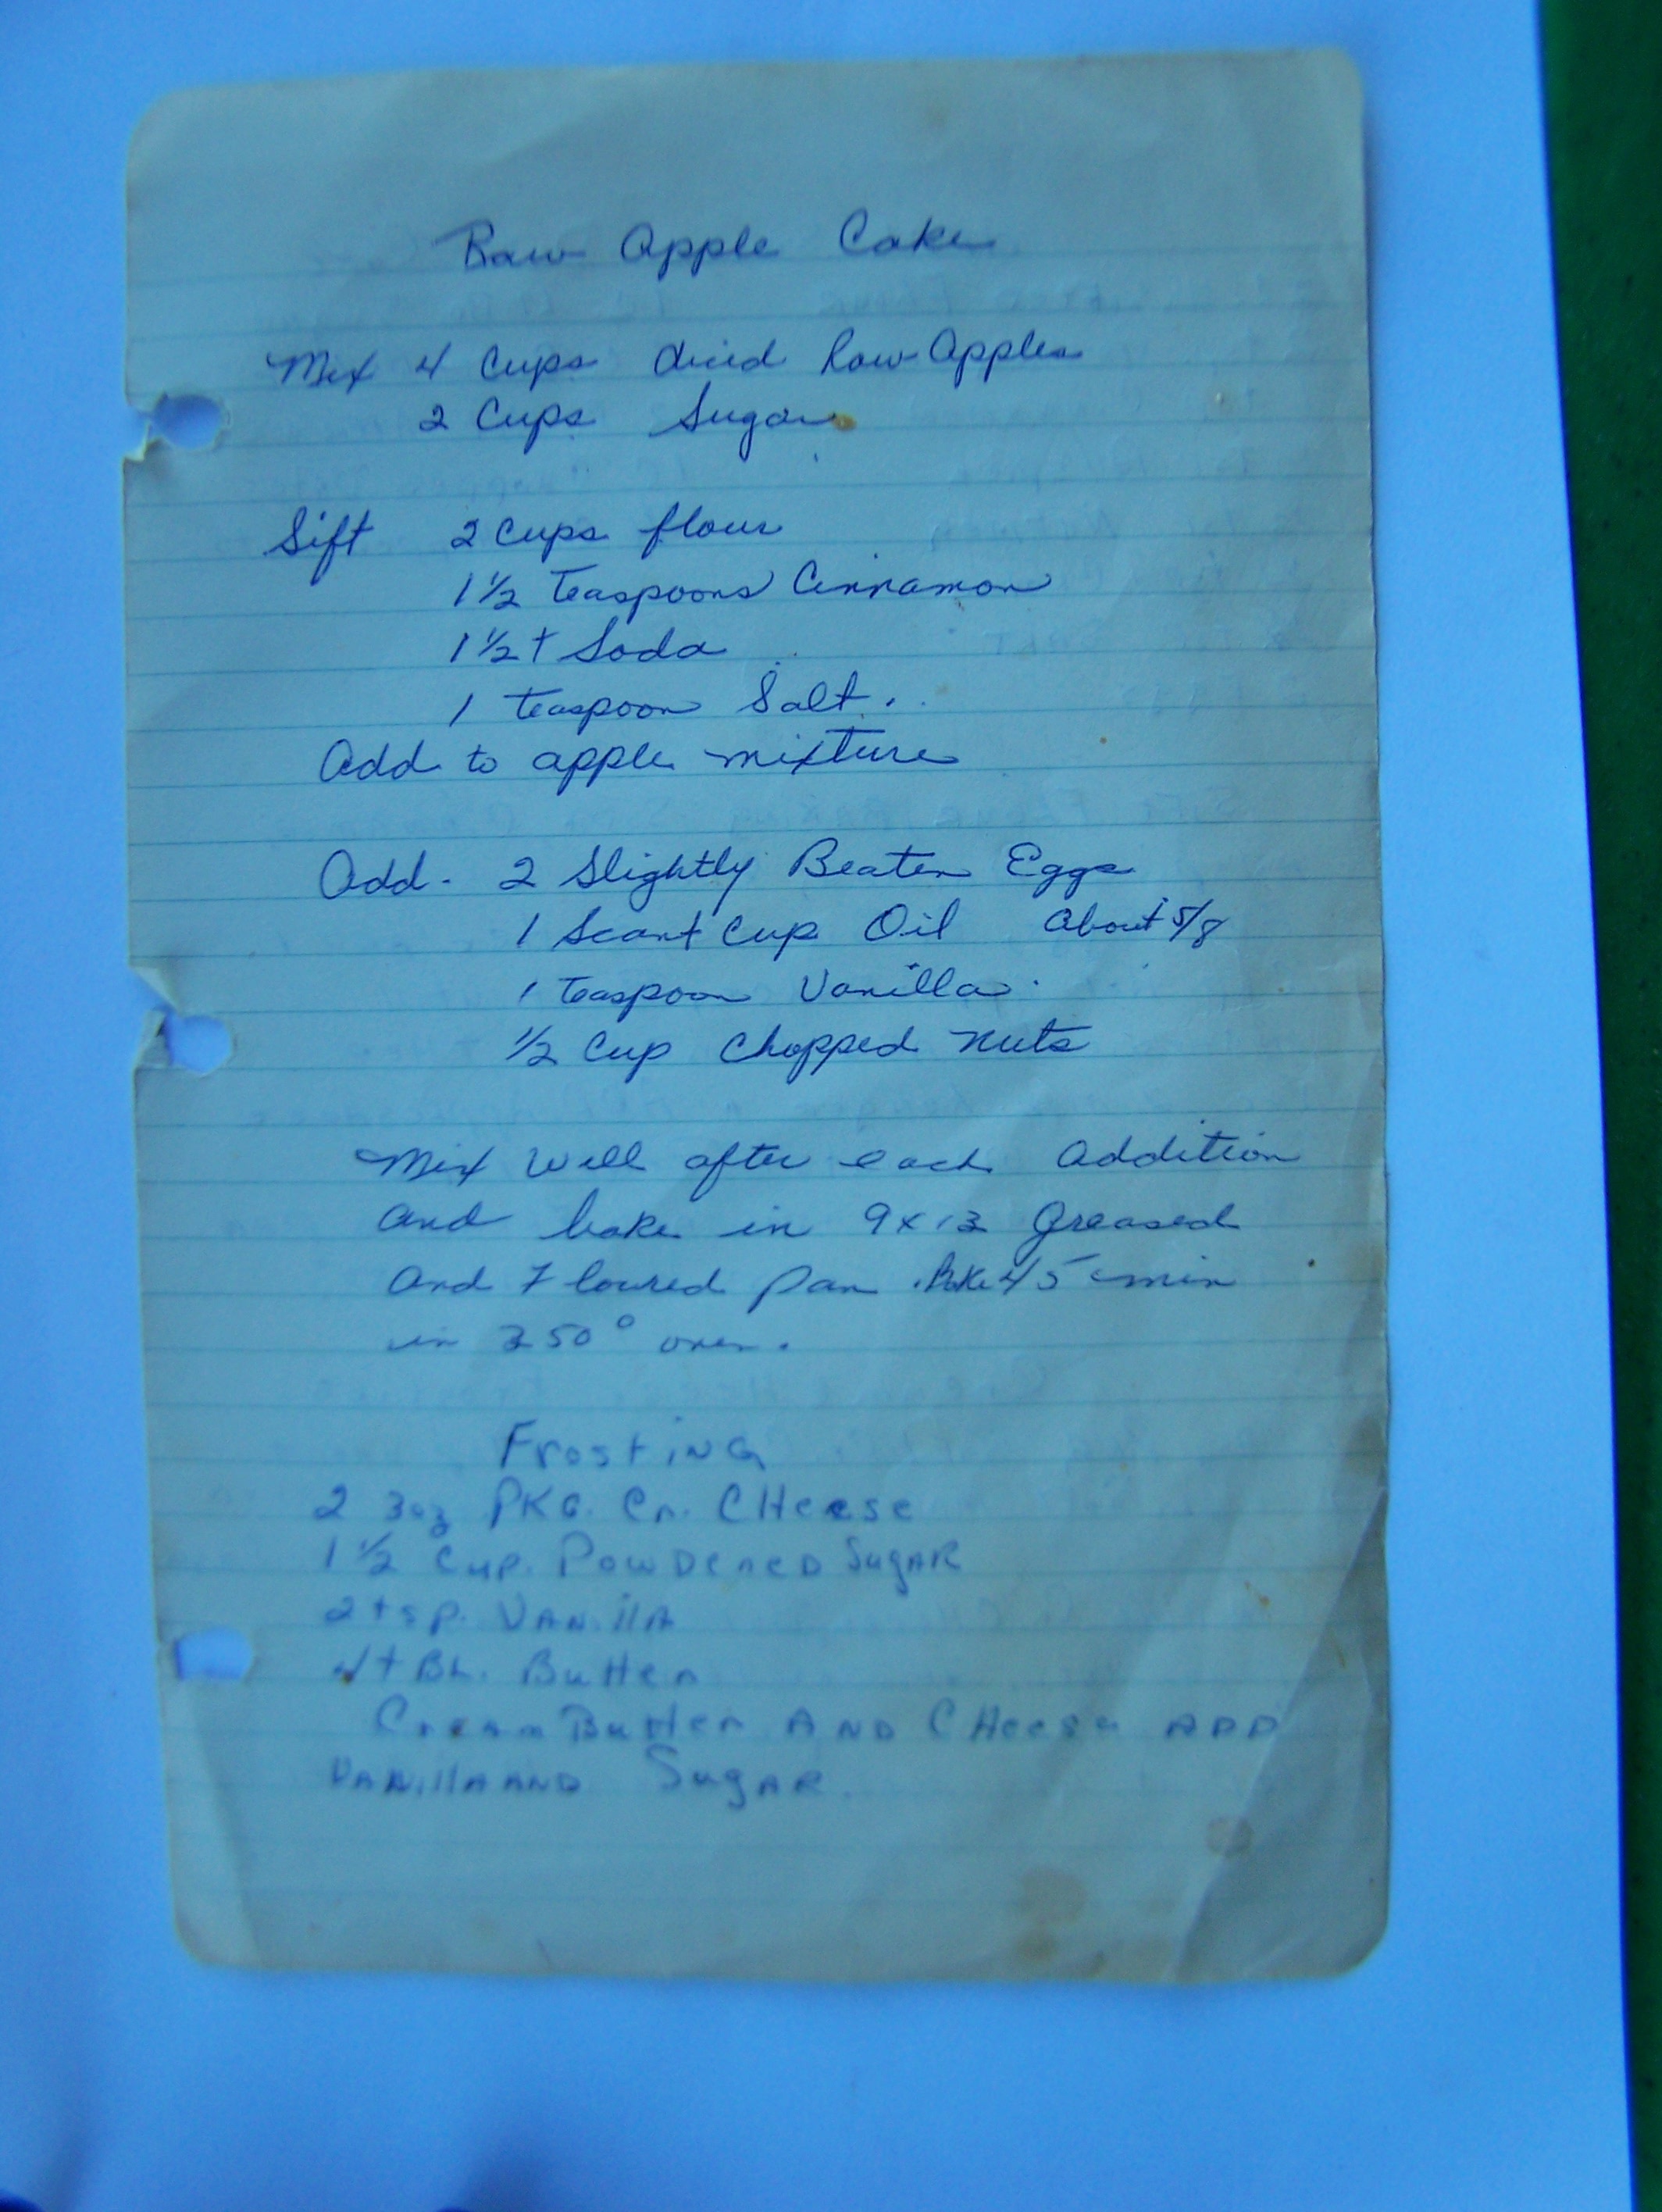 Raw Apple Cake
Mix 4 Cups diced Raw Apples
2 Cups Sugar
Sift 2 Cups flour
1 1/2 Teaspoons Cinnamon
1 1/2 t Soda
1 Teaspoon Salt.
Add to apple mixture
Add - 2 Slightly Beaten Eggs
1 Scant Cup Oil About 5/8
1 Teaspoon Vanilla.
1/2 Cup Chopped Nuts
Mix Well after each Addition
and bake in 9x13 Greased
and Floured Pan. Bake 45 min
in 350° oven.
Frosting
2 3oz PKG. Cr. CHeese
1 1/2 Cup. Powdered Sugar
2 tsp. VANillA
4 tBL. Butter
Cream Butter AND CHeese ADD
VANillA AND SugAR.